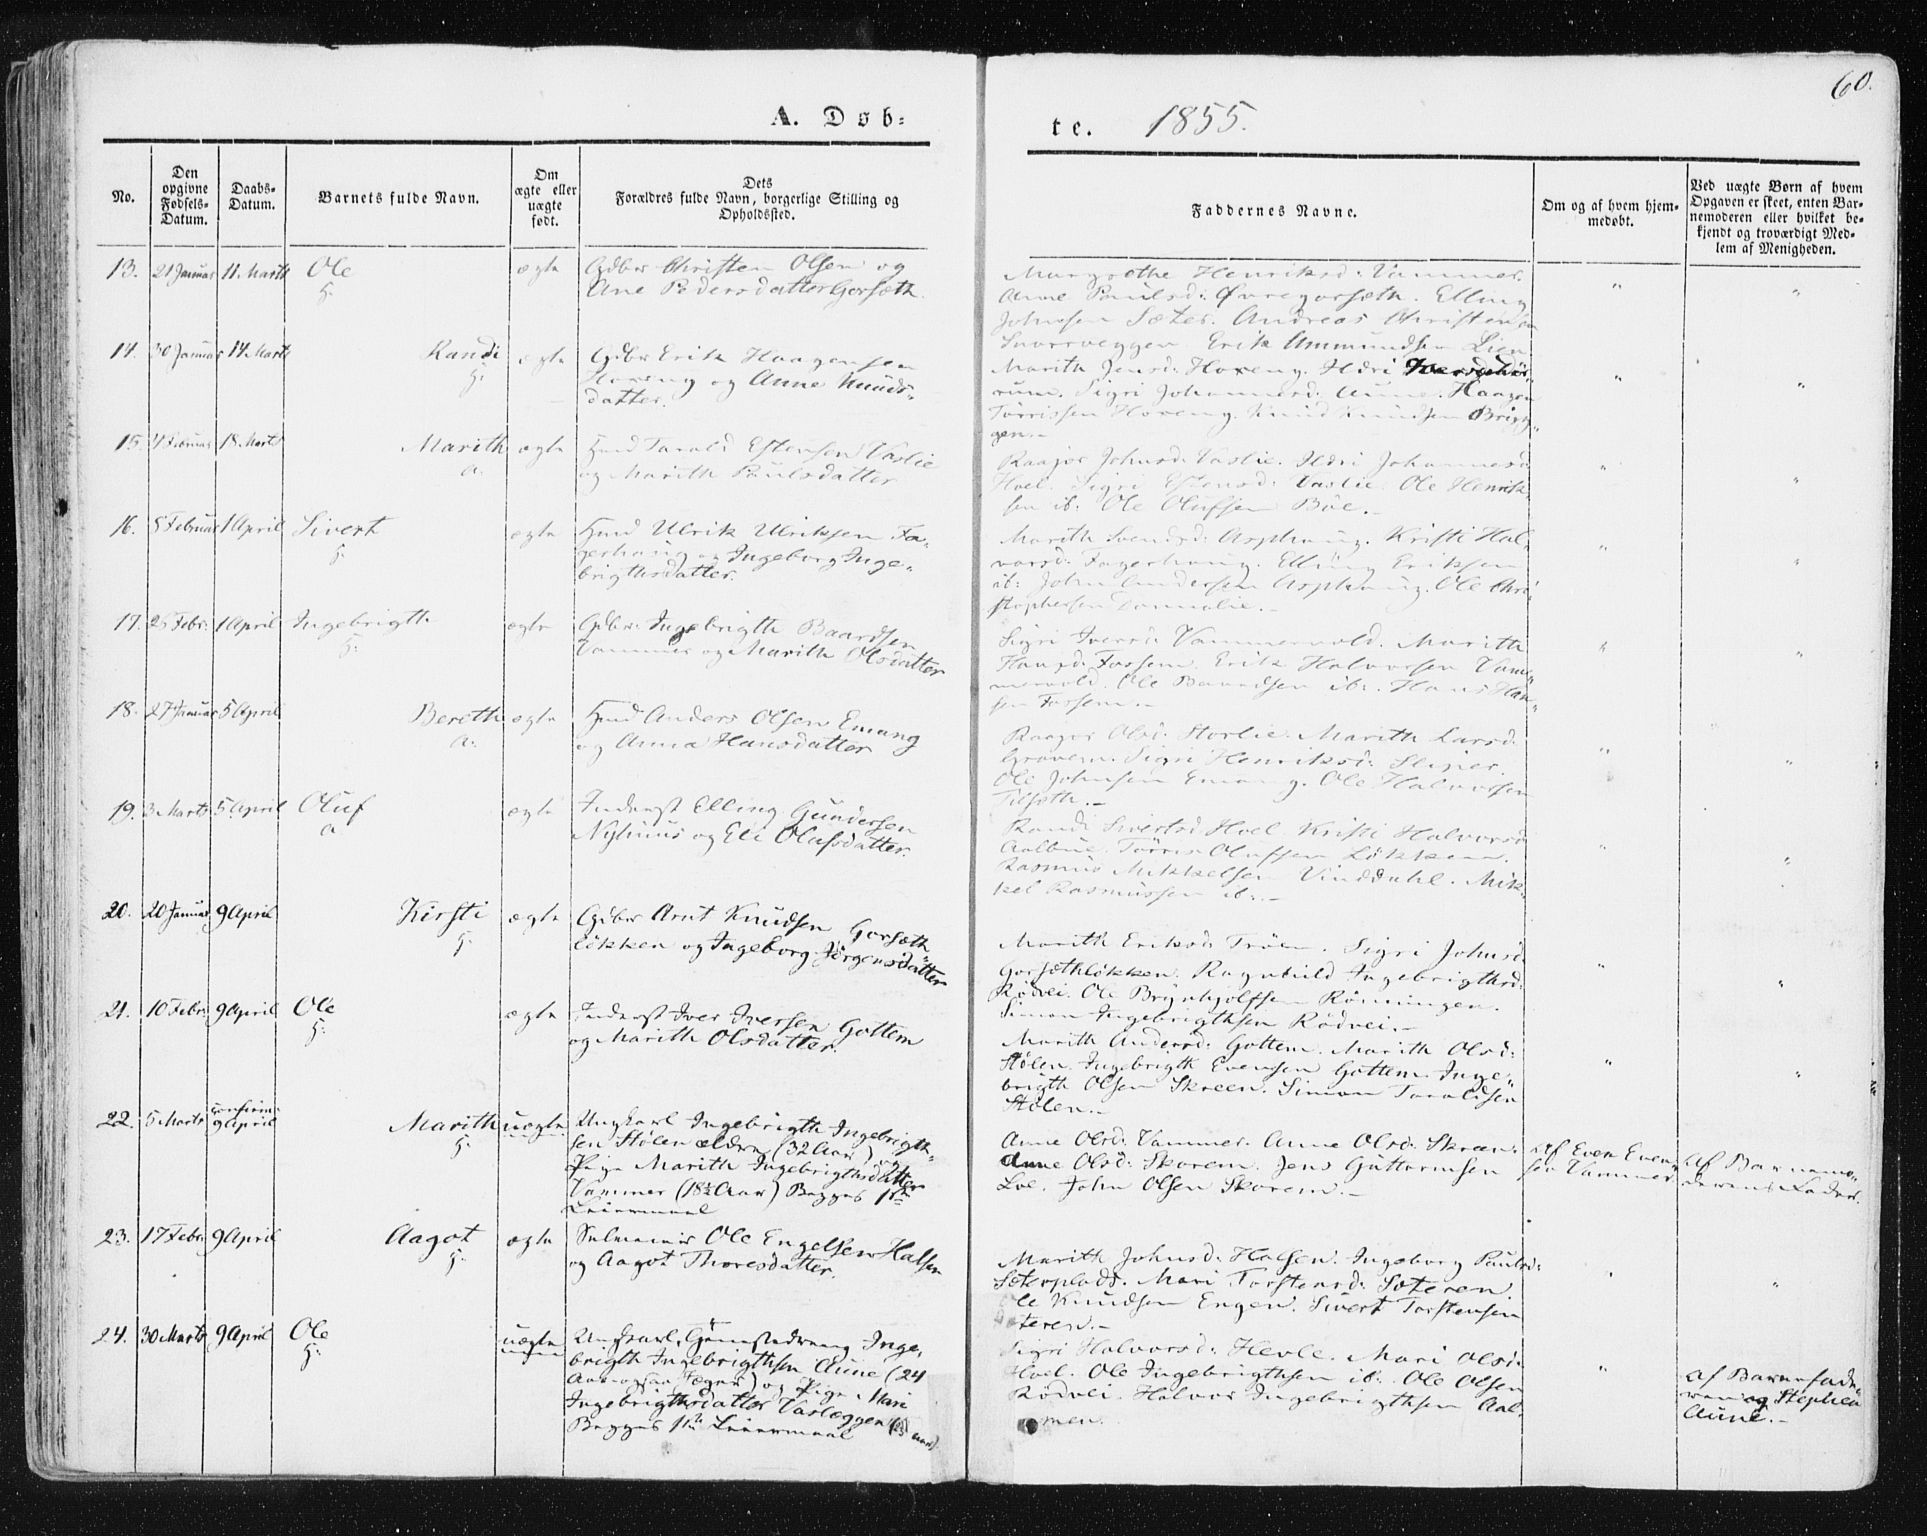 60.
A. Døb=
te. 1855.
No.
Den opgivne Fødsels-Datum.
Daabs-Datum.
Barnets fulde Navn.
Om ægte eller uægte født.
Dets Forældres fulde Navn, borgerlige Stilling og Opholdssted.
Faddernes Navne.
Om og af hvem hjem-medøbt.
Ved uægte Børn af hvem Opgaven er skeet, enten Bar-nemoderen eller hvilket be-kjendt og troværdigt Med-lem af Menigheden.
13. 21 Januar 11. Marts Ole ægte Gdbr Christen Olsen og
H.
Ane Pedersdatter Gorsæth.
Margrethe Henriksd: Vammer.
Anne Paulsd: Øvregorsæth. Elling
Johnsen Sæter. Andreas Christensen
Snorroeggen. Erik Ammundsen Lien
14. 30 Januar 14 Marts Randi ægte Gdbr Erik Haagensen
H.
Horeng og Anne Knuds-
datter.
Marith Jensd: Horeng. Ildri
rum. Sigri Johannesd: Aune. Haagen
Torrissen Horeng. Knud Knudsen Brigg-
gen.-
15. 4 Februar 18 Marts Marith ægte Hmd Tarald Estensen Vaslie
a.
og Marith Paulsdatter
Raagor Johnsd: Vaslie. Ildri Johannesd:
Hoel. Sigri Estensd: Vaslie. Ole Henrik-
sen ib: Ole Olufsen Böe.-
16. 8 Februar 1 April Sivert ægte Hmd Ulrik Ulriksen Fa-
H.
gerhaug og Ingeborg Inge-
brigthsdatter.
Marith Svendsd: Asphaug. Kristi Hal-
vorsd: Fagerhaug. Elling Eriksen
ib: John Andersen Asphaug. Ole Chri-
stophersen Donnalie.-
17. 25 Febr: 1 April Ingebrigth ægte Gdbr: Ingebrigth Baardsen
H:
Vammer og Marith Olsdatter
Sigri Iversd: Vammervold. Marith
Haugd: Fossem. Erik Halvorsen Vam-
mervold. Ole Baardsen ib:. Hans Han-
sen Fossem.-
18. 27 Januar 5 April Bereth ægte Hmd Anders Olsen Emang
a.
og Anna Hansdatter
Raagor Olsd: Storlie. Marith Larsd:
Graven. Sigri Henriksd: Sliper.
Ole Johnsen Emang. Ole Halvorsen
Tilseth.-
19. 3 Marts 5 April Oluf ægte Inderst Elling Gundersen
a
Nyhuus og Eli Olufsdatter.
Randi Sivertsd: Hoel. Kristi Halvorsd:
Aalbue. Törris Olufsen Lökken.
Rasmus Mikkelsen Vinddahl. Mik-
kel Rasmussen ib:.-
20. 20 Januar 9 April Kirsti ægte Gdbr Arnt Knudsen Gorsæth
H.
lökken og Ingeborg Jörgensdatter
Marith Eriksd: Tröen. Sigri Johnsd:
Gorsæthlökken. Ragnhild Ingebrigthsd:
Rödvei. Ole Brynhjolfsen Rönningen.
Simon Ingebrigthsen Rödvei.-
21. 10 Febr: 9 April Ole ægte Inderst Iver Iversen Gottem
H:
og Marith Olsdatter.
Marith Andersd: Gottem. Marith Olsd:
Stölen. Ingebrigth Evensen Gottem. Inge-
brigth Olsen Skreen. Simon Taraldsen
Stölen.-
22. 5 Marts confirm: 9 April Marith uægte Ungkarl Ingebrigth Ingebrigth-
H.
sen Stölen ældre (32 Aar) og
Pige Marith Ingebrigthsdatter
Vammer (18½ Aar) Begges 1ste
Leiermaal
Anne Olsd: Vammer. Anne Olsd: Skreen.
Anne Olsd: Skorem. Jens Guttormsen
Loe. John Olsen Skorem.-
Af Even Even-
sen Vammer
Af Barnemo-
derens Fader.
23. 17 Febr: 9 April Aagot ægte Selveier Ole Engelsen Halsen
H.
og Aagot Thoresdatter.
Marith Johnsd: Halsen. Ingeborg Paulsd:
Sæterplads. Mari Torstensd: Sæteren.
Knudsen Engen. Sivert Torstensen
teren.-
24. 30 Marts 9 April Ole uægte Ungkarl, Inge-
H:
brigth Ingebrigthsen Aune (24
Aar) og Pige Mari
Ingebrigthsdatter Vasleggen (25 aar)
Begges 1ste Leiermaal
Sigri Halvorsd: Hevle. Mari Olsd:
Hoel. Ole Ingebrigthsen ib: Ole Olsen
Rödvei. Halvor Ingebrigthsen Aal-
men.
af Barnefade-
ren og Stephen
Aune.-